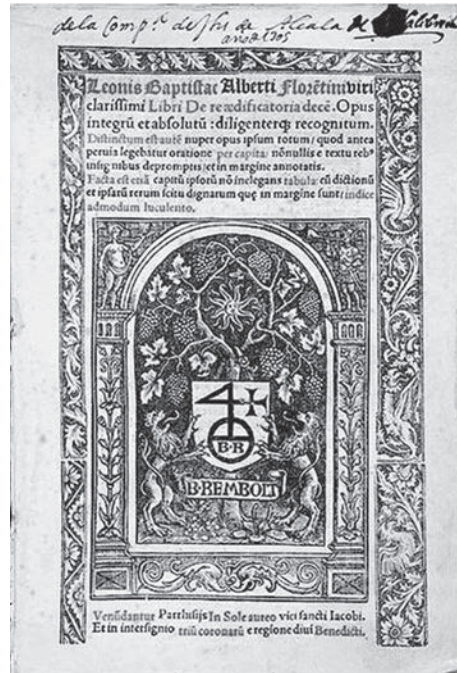 de la Comp.ª de Jhs de Alcala de
año de 1705
Leonis Baptistae Alberti Florẽtini viri
clarissimi Libri De re ædificatoria decẽ. Opus
integrũ et absolutũ: diligenterqꝫ recognitum.
Distinctum est autẽ nuper opus ipsum totum/ quod antea
perpetua legebatur oratione per capita: nõnullis e textu reb⁹
insignibus depromptis/et in margine annotatis.
Facta est etiã capitũ ipsorũ nõ inelegans tabula: cũ dictionũ
et ipsarũ rerum scitu dignarum quę in margine sunt/ indice
admodum luculento.
B·R
B·REMBOLT
Venũdantur Parrhisijs In Sole aureo vici sancti Iacobi.
Et in intersignio triũ coronarũ e regione diui Benedicti.